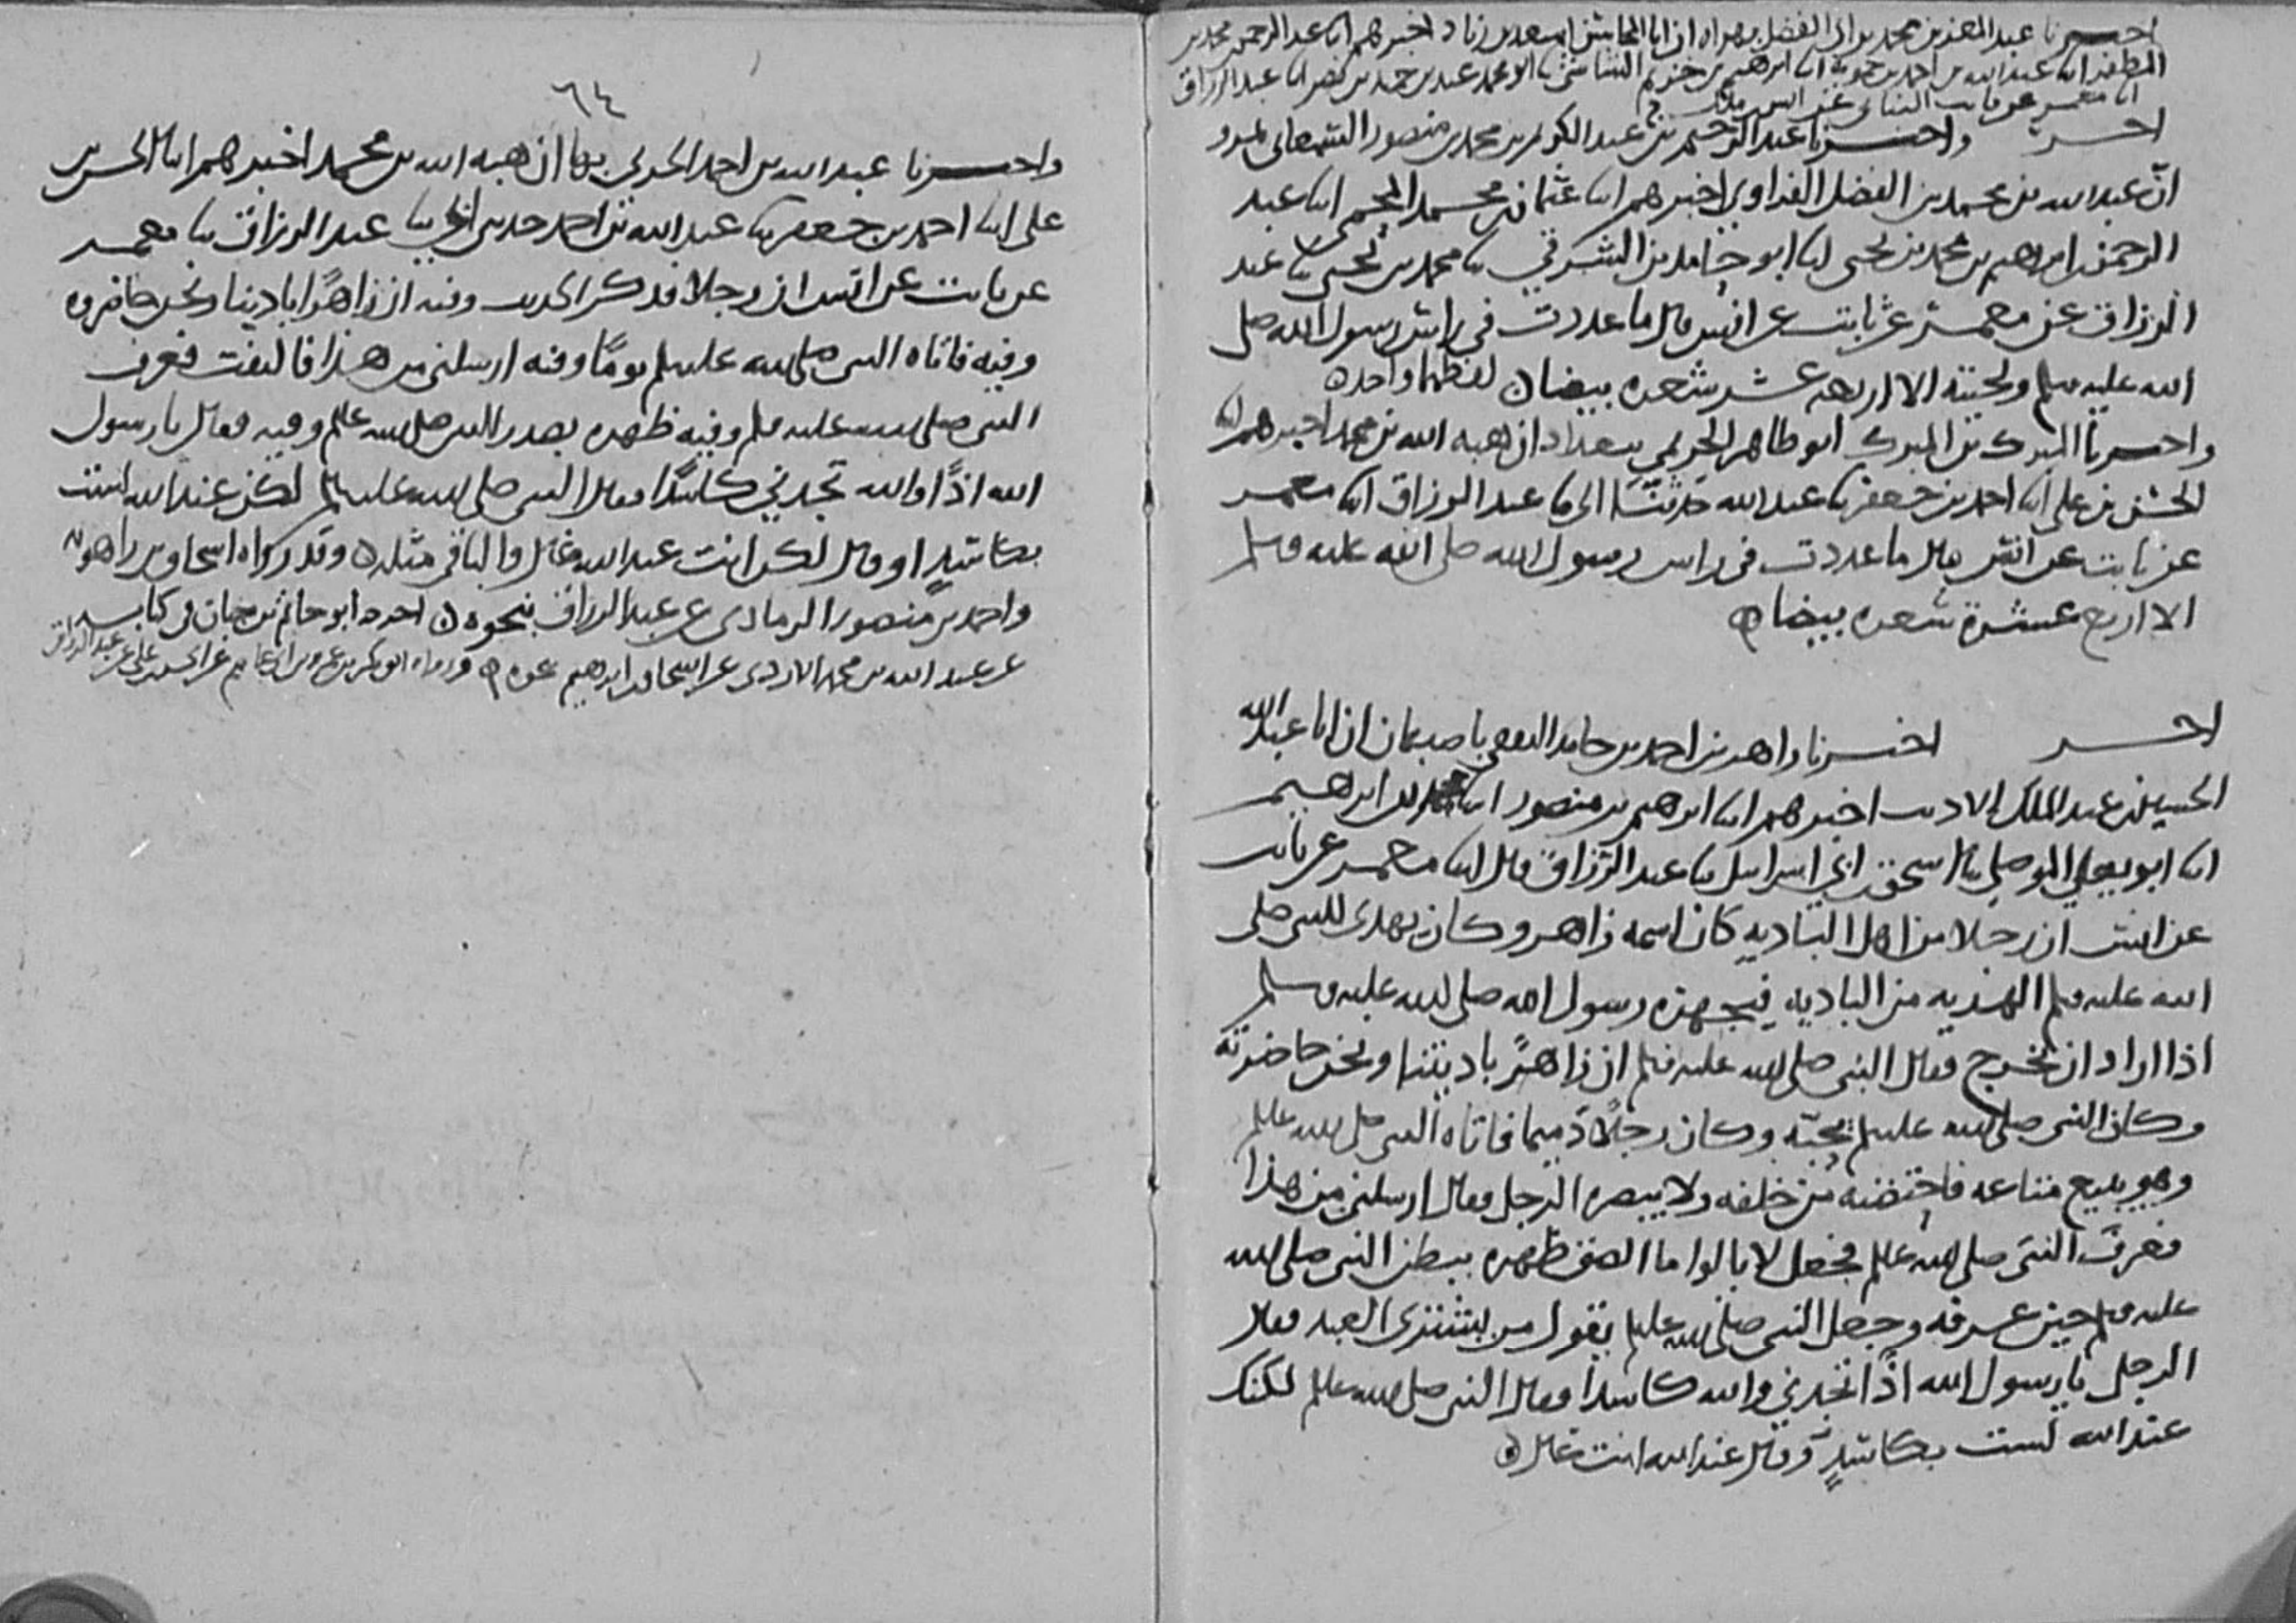 اخبرنا عبد المعز بن محمد بن ابي الفضل بهراه ان ابا المحاسن اسعد بن زياد اخبرهم ابنا عبد الرحمن بن محمد بن
المظفر ابنا عبد الله بن احمد بن حمويه ابنا ابرهيم بن خزيم الشاشي نا ابو محمد عبد بن حميد بن نصر ابنا عبد الرزاق
ابنا معمر عن ثابت البناني عن انس بن مالك
اخر واخبرنا عبد الرحيم بن عبد الكريم بن محمد بن منصور السمعاني بمرو
ان عبد الله بن محمد بن الفضل الفراوي اخبرهم ابنا عثمان بن محمد المحمي ابنا عبد
الرحمن بن ابراهيم بن محمد بن يحيى ابنا ابو حامد بن الشرقي نا محمد بن يحيى نا عبد
الرزاق عن معمر عن ثابت عن انس قال ما عددت في راس رسول الله صلى
الله عليه وسلم ولحيته الا اربعه عشر شعره بيضا لفظهما واحد
واخبرنا المبرك بن المبرك ابو طاهر الحريمي ببغداد ان هبه الله بن محمد اخبرهم ابنا
الحسن بن علي ابنا احمد بن جعفر نا عبد الله حدثني ابي نا عبد الرزاق ابنا معمر
عن ثابت عن انس قال ما عددت في راس رسول الله صلى الله عليه وسلم
الا اربع عشرة شعره بيضا
اخر اخبرنا زاهر بن احمد بن حامد الثقفي باصبهان ان ابا عبد الله
الحسين بن عبد الملك الاديب اخبرهم ابنا ابرهيم بن منصور ابنا محمد بن ابرهيم
ابنا ابو يعلى الموصلي نا اسحق بن ابي اسرايل نا عبد الرزاق قال ابنا معمر عن ثابت
عن انس ان رجلا من اهل الباديه كان اسمه زاهر وكان يهدى للنبي صلى
الله عليه وسلم الهديه من الباديه فيجهزه رسول الله صلى الله عليه وسلم
اذا اراد ان يخرج فقال النبي صلى الله عليه وسلم ان زاهرا باديتنا ونحن حاضرته
وكان النبي صلى الله عليه وسلم يحبه وكان رجلا دميما فاتاه النبي صلى الله عليه وسلم
وهو يبيع متاعه فاحتضنه من خلفه ولا يبصره الرجل فقال ارسلني من هذا
فعرف النبي صلى الله عليه وسلم فجعل لا يالوا ما الصق ظهره ببطن النبي صلى الله
عليه وسلم حين عرفه وجعل النبي صلى الله عليه وسلم يقول من يشترى العبد فقال
الرجل يا رسول الله اذا تجدني والله كاسدا فقال النبي صلى الله عليه وسلم لكنك
عند الله لست بكاسد وقال عند الله انت غال
٦٤
واخبرنا عبد الله بن احمد الحربي بها ان هبه الله بن محمد اخبرهم ابنا الحسن بن
علي ابنا احمد بن جعفر نا عبد الله بن احمد حدثني ابي نا عبد الرزاق نا معمر
عن ثابت عن انس ان رجلا فذكر الحديث وفيه ان زاهرا باديتنا ونحن حاضروه
وفيه فاتاه النبي صلى الله عليه وسلم يوما وفيه ارسلني من هذا فالتفت فعرف
النبي صلى الله عليه وسلم وفيه ظهره بصدر النبي صلى الله عليه وسلم وفيه فقال يا رسول
الله اذا والله تجدني كاسدا فقال النبي صلى الله عليه وسلم لكن عند الله لست
بكاسد او قال لكن انت عند الله غال والباقي مثله وقد رواه اسحاق بن راهويه
واحمد بن منصور الرمادي عن عبد الرزاق بنحوه اخرجه ابو حاتم بن حبان في كتابه
عن عبد الله بن محمد الازدي عن اسحاق بن ابرهيم نحوه ورواه ابو بكر بن عمرو بن ابي عاصم عن الحسن بن علي عن عبد الرزاق